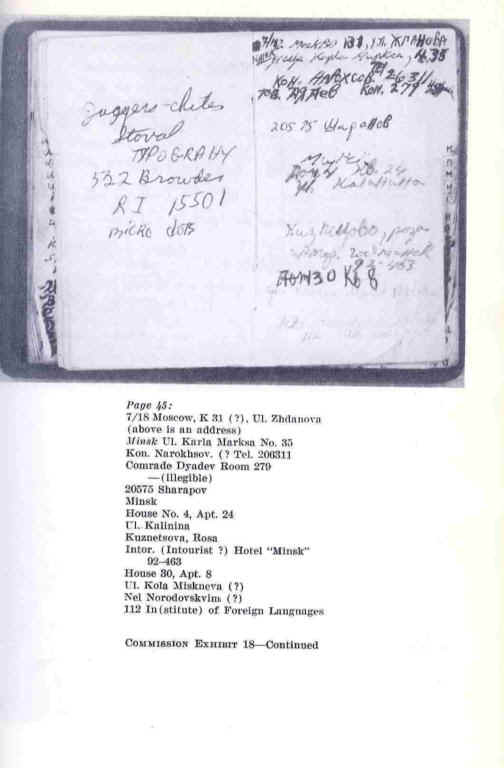 Jaggers-Chiles
Stoval
TYPOGRAHY
522 Browder
RI 15501
micro dots
МОСКВА
205 75 Шарапов
Минск
Дом 4 Кв. 24
Ул. Калинина
Кузнецова, роза
92-463
Дом 30 Кв 8
Page 45:
7/18 Moscow, K 31 (?), Ul. Zhdanova
(above is an address)
Minsk Ul. Karla Marksa No. 35
Kon. Narokhsov. (? Tel. 206311
Comrade Dyadev Room 279
—(illegible)
20575 Sharapov
Minsk
House No. 4, Apt. 24
Ul. Kalinina
Kuznetsova, Rosa
Intor. (Intourist ?) Hotel "Minsk"
92–463
House 30, Apt. 8
Ul. Kola Miskneva (?)
Nel Norodovskvim (?)
112 In(stitute) of Foreign Languages
COMMISSION EXHIBIT 18—Continued